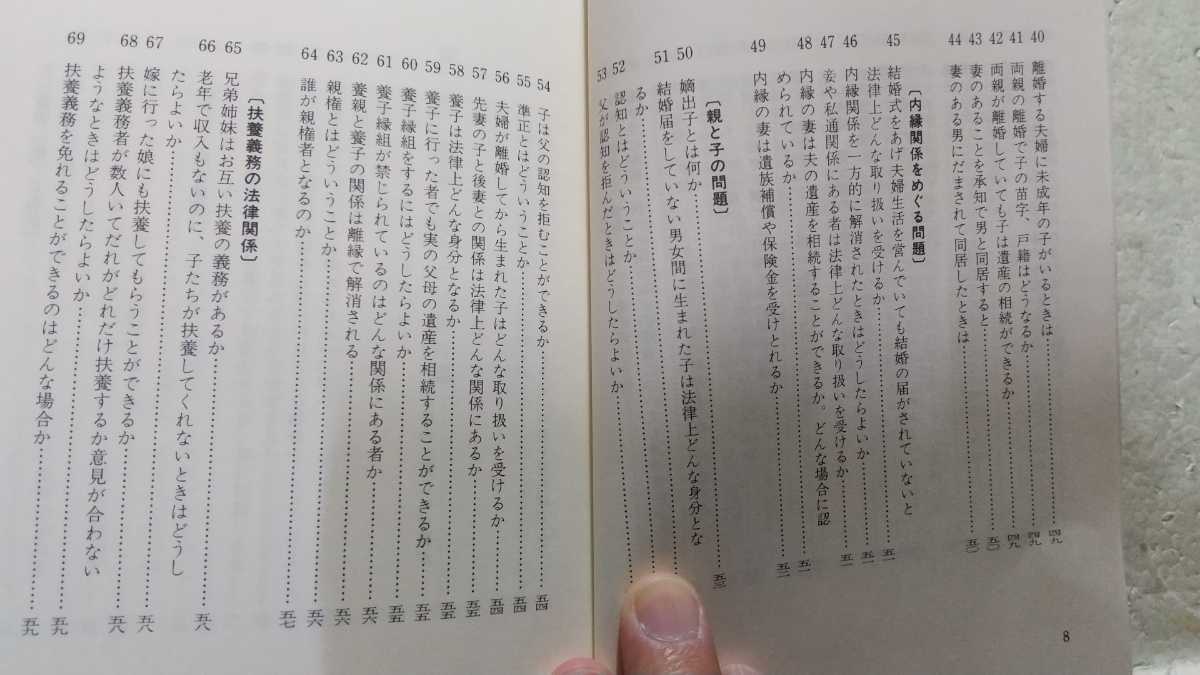 40 離婚する夫婦に未成年の子がいるときは……四九
41 両親の離婚で子の苗字、戸籍はどうなるか……四九
42 両親が離婚していても子は遺産の相続ができるか……四九
43 妻のあることを承知で男と同居すると……五〇
44 妻のある男にだまされて同居したときは……五〇
〔内縁関係をめぐる問題〕
45 結婚式をあげ夫婦生活を営んでいても結婚の届がされていないと
法律上どんな取り扱いを受けるか……五一
46 内縁関係を一方的に解消されたときはどうしたらよいか……五一
47 妾や私通関係にある者は法律上どんな取り扱いを受けるか……五一
48 内縁の妻は夫の遺産を相続することができるか。どんな場合に認
められているか……五一
49 内縁の妻は遺族補償や保険金を受けとれるか……五二
〔親と子の問題〕……五三
50 嫡出子とは何か……
51 結婚届をしていない男女間に生まれた子は法律上どんな身分とな
るか……
52 認知とはどういうことか……
53 父が認知を拒んだときはどうしたらよいか
54 子は父の認知を拒むことができるか……五四
55 準正とはどういうことか……五四
56 夫婦が離婚してから生まれた子はどんな取り扱いを受けるか……五四
57 先妻の子と後妻との関係は法律上どんな関係にあるか……五五
58 養子は法律上どんな身分となるか……五五
59 養子に行った者でも実の父母の遺産を相続することができるか……五五
60 養子縁組をするにはどうしたらよいか……五五
61 養子縁組が禁じられているのはどんな関係にある者か……五六
62 養親と養子の関係は離縁で解消される……五六
63 親権とはどういうことか……五六
64 誰が親権者となるのか……五七
〔扶養義務の法律関係〕
65 兄弟姉妹はお互い扶養の義務があるか……五八
66 老年で収入もないのに、子たちが扶養してくれないときはどうし
たらよいか……五八
67 嫁に行った娘にも扶養してもらうことができるか……五八
68 扶養義務者が数人いてだれがどれだけ扶養するか意見が合わない
ようなときはどうしたらよいか……五九
69 扶養義務を免れることができるのはどんな場合か……五九
8